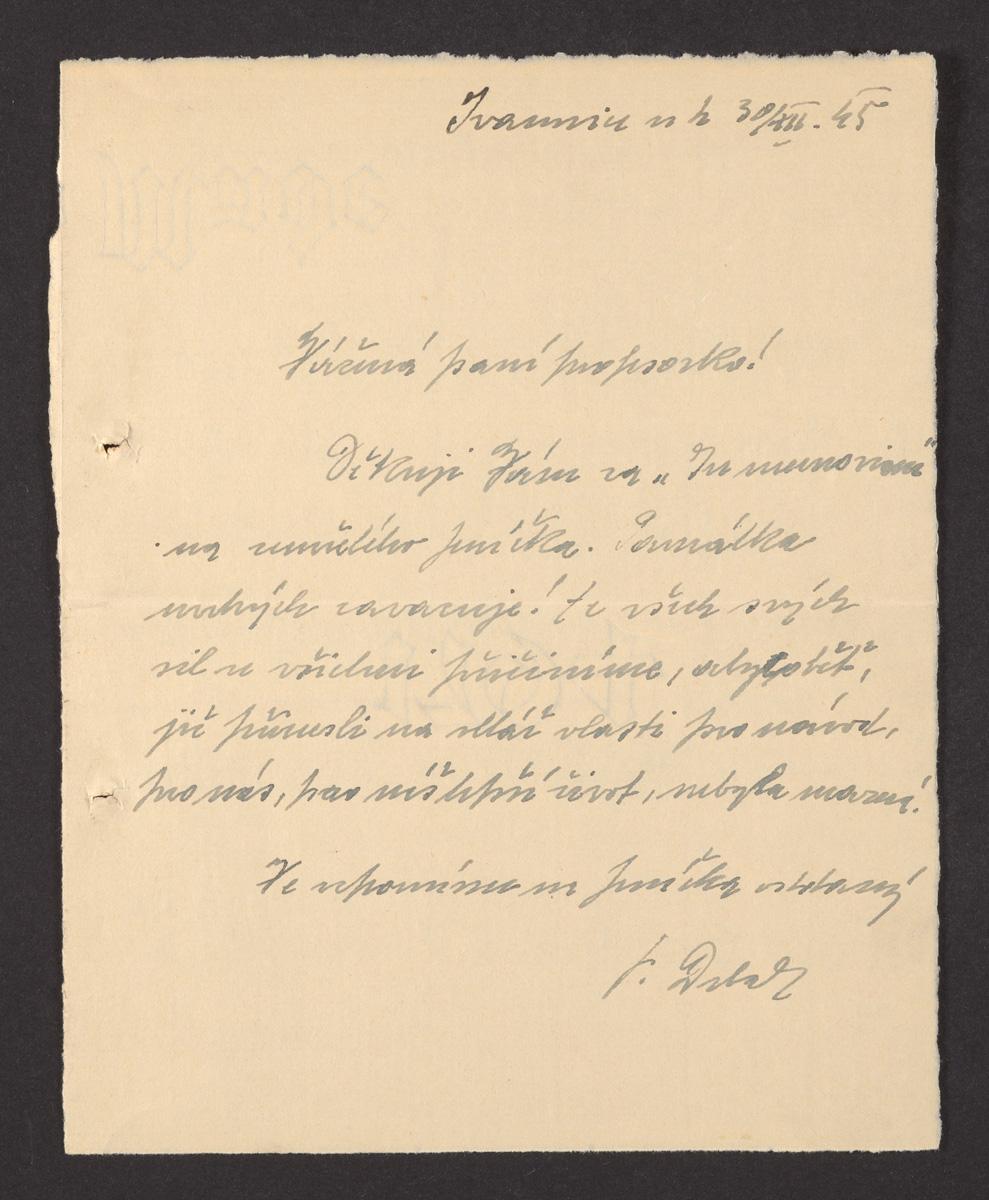 Ivančice n h 30/XII. 45
Vážená paní profesorko!
Děkuji Vám za „In memoriam“
na umělého Jeníčka. Památka
mrtvých zavazuje! Ze všech svých
sil se všichni přičiníme, aby oběť,
již přinesli na oltář vlasti pro národ,
pro nás, pro náš lepší život, nebyla marná!
Ve vzpomínce na Jeníčka oddaný